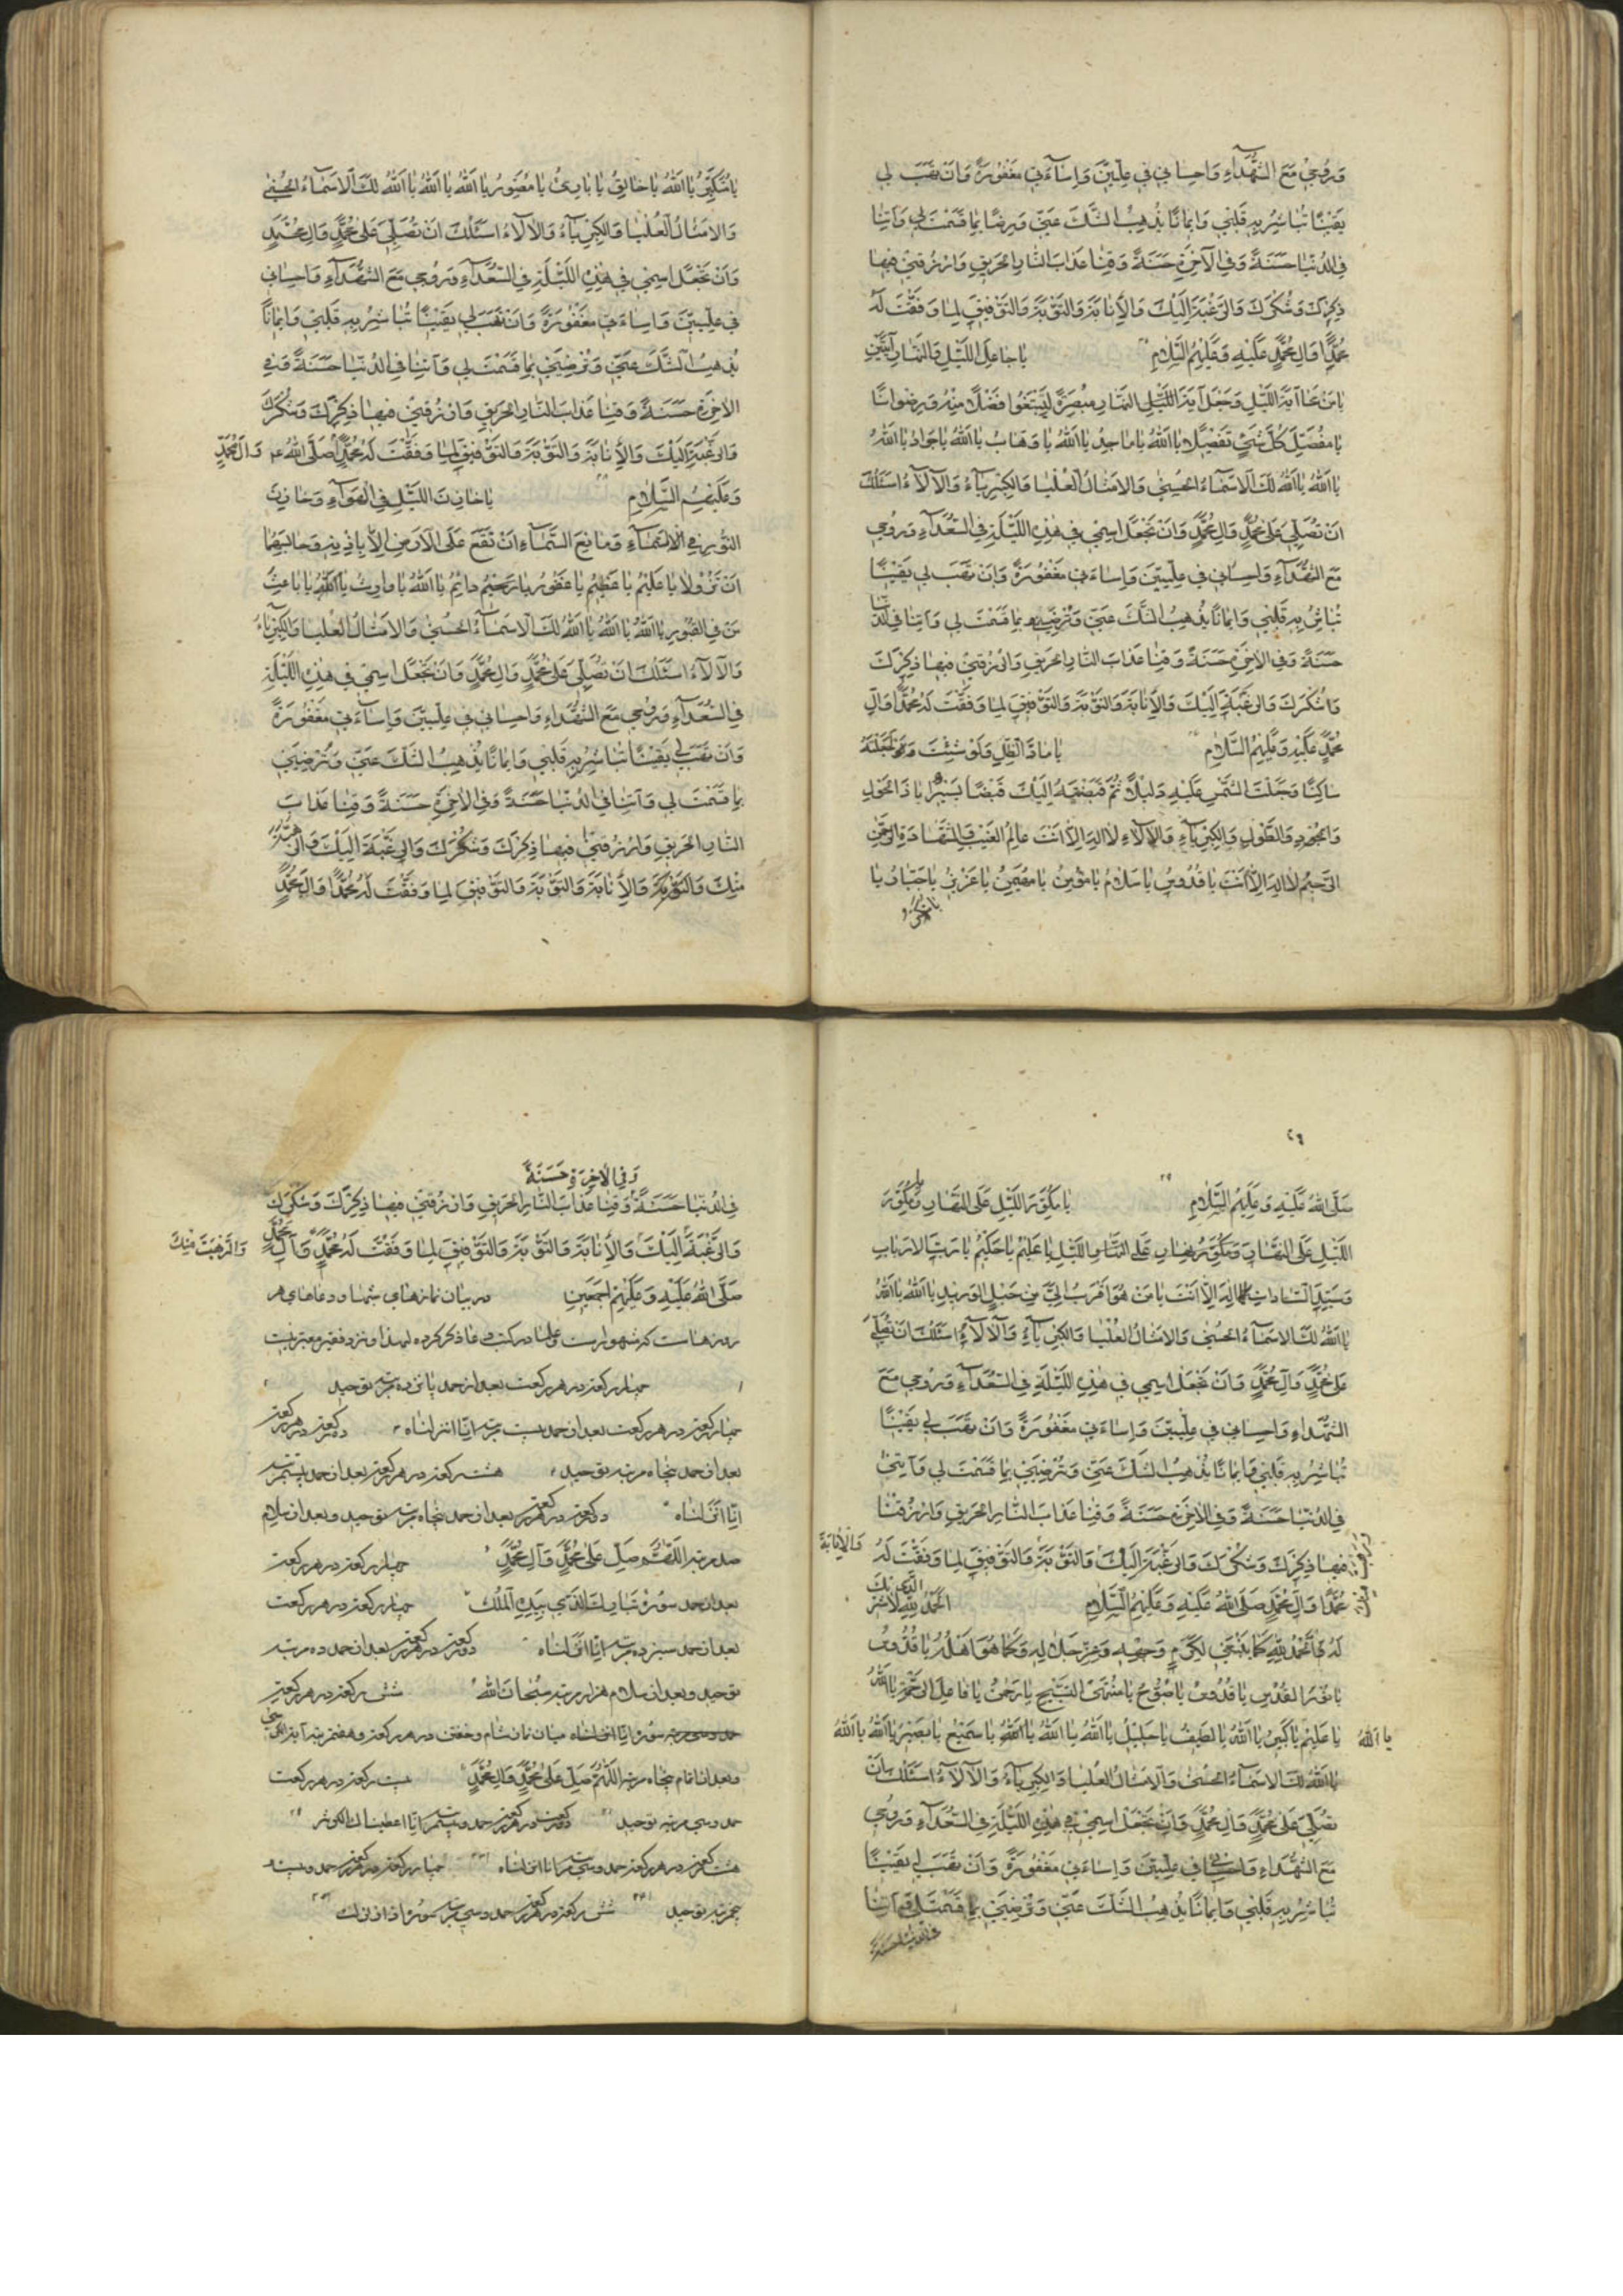 وَرُوحِي مَعَ الشُّهَدَاءِ وَاحِسَانِي فِي عِلِّيِّينَ وَاِسَاءَتِي مَغْفُورَةً وَاَنْ تَهَبَ لِي
يَقِينًا تُبَاشِرُ بِهِ قَلْبِي وَاِيمَانًا يُذْهِبُ الشَّكَّ عَنِّي وَرِضًا بِمَا قَسَمْتَ لِي وَآتِنَا
فِي الدُّنْيَا حَسَنَةً وَفِي الْآخِرَةِ حَسَنَةً وَقِنَا عَذَابَ النَّارِ الْحَرِيقِ وَارْزُقْنِي فِيهَا
ذِكْرَكَ وَشُكْرَكَ وَالرَّغْبَةَ اِلَيْكَ وَالْاِنَابَةَ وَالتَّوْبَةَ وَالتَّوْفِيقَ لِمَا وَفَّقْتَ لَهُ
مُحَمَّدًا وَآلِ مُحَمَّدٍ عَلَيْهِ وَعَلَيْهِمُ السَّلَامِ يَا جَاعِلَ اللَّيْلِ وَالنَّهَارِ آيَتَيْنِ
يَا مَنْ مَحَا آيَةَ اللَّيْلِ وَجَعَلَ آيَةَ النَّهَارِ مُبْصِرَةً لِيَبْتَغُوا فَضْلًا مِنْهُ وَرِضْوَانًا
يَا مُفَصِّلَ كُلِّ شَيْءٍ تَفْصِيلًا يَا اَللهُ يَا مَاجِدُ يَا اَللهُ يَا وَهَّابُ يَا اَللهُ يَا جَوَادُ يَا اَللهُ
يَا اَللهُ يَا اَللهُ لَكَ الْاَسْمَاءُ الْحُسْنَى وَالْاَمْثَالُ الْعُلْيَا وَالْكِبْرِيَاءُ وَالْآلَاءُ اَسْئَلُكَ
اَنْ تُصَلِّيَ عَلَى مُحَمَّدٍ وَآلِ مُحَمَّدٍ وَاَنْ تَجْعَلَ اسْمِي فِي هَذِهِ اللَّيْلَةِ فِي السُّعَدَآءِ وَرُوحِي
مَعَ الشُّهَدَآءِ وَاِحْسَانِي فِي عِلِّيِّينَ وَاِسَاءَتِي مَغْفُورَةً وَاَنْ تَهَبَ لِي يَقِينًا
تُبَاشِرُ بِهِ قَلْبِي وَاِيمَانًا يُذْهِبُ الشَّكَّ عَنِّي وَتُرْضِيَنِي بِمَا قَسَمْتَ لِي وَآتِنَا فِي الدُّنْيَا
حَسَنَةً وَفِي الْآخِرَةِ حَسَنَةً وَقِنَا عَذَابَ النَّارِ الْحَرِيقِ وَارْزُقْنِي فِيهَا ذِكْرَكَ
وَشُكْرَكَ وَالرَّغْبَةَ اِلَيْكَ وَالْاِنَابَةَ وَالتَّوْبَةَ وَالتَّوْفِيقَ لِمَا وَفَّقْتَ لَهُ مُحَمَّدًا وَآلِ
مُحَمَّدٍ عَلَيْهِ وَعَلَيْهِمُ السَّلَامِ يَا مَادَّ الظِّلِّ وَلَوْ شِئْتَ لَجَعَلْتَهُ
سَاكِنًا وَجَعَلْتَ الشَّمْسَ عَلَيْهِ دَلِيلًا ثُمَّ قَبَضْتَهُ اِلَيْكَ قَبْضًا يَسِيرًا يَا ذَا الْحَوْلِ
وَالْجُودِ وَالطَّوْلِ وَالْكِبْرِيَآءِ وَالْآلَاءِ لَا اِلَهَ اِلَّا اَنْتَ عَالِمُ الْغَيْبِ وَالشَّهَادَةِ الرَّحْمَنُ
الرَّحِيمُ لَا اِلَهَ اِلَّا اَنْتَ يَا قُدُّوسُ يَا سَلَامُ يَا مُؤْمِنُ يَا مُهَيْمِنُ يَا عَزِيزُ يَا جَبَّارُ يَا
يَا مُتَكَبِّرُ يَا اَللهُ يَا خَالِقُ يَا بَارِئُ يَا مُصَوِّرُ يَا اَللهُ يَا اَللهُ يَا اَللهُ لَكَ الْاَسْمَاءُ الْحُسْنَى
وَالْاَمْثَالُ الْعُلْيَا وَالْكِبْرِيَآءُ وَالْآلَاءُ اَسْئَلُكَ اَنْ تُصَلِّيَ عَلَى مُحَمَّدٍ وَآلِ مُحَمَّدٍ
وَاَنْ تَجْعَلَ اسْمِي فِي هَذِهِ اللَّيْلَةِ فِي السُّعَدَآءِ وَرُوحِي مَعَ الشُّهَدَآءِ وَاحِسَانِي
فِي عِلِّيِّينَ وَاِسَاءَتِي مَغْفُورَةً وَاَنْ تَهَبَ لِي يَقِينًا تُبَاشِرُ بِهِ قَلْبِي وَاِيمَانًا
يُذْهِبُ الشَّكَّ عَنِّي وَتُرْضِيَنِي بِمَا قَسَمْتَ لِي وَآتِنَا فِي الدُّنْيَا حَسَنَةً وَفِي
الْآخِرَةِ حَسَنَةً وَقِنَا عَذَابَ النَّارِ الْحَرِيقِ وَارْزُقْنِي فِيهَا ذِكْرَكَ وَشُكْرَكَ
وَالرَّغْبَةَ اِلَيْكَ وَالْاِنَابَةَ وَالتَّوْبَةَ وَالتَّوْفِيقَ لِمَا وَفَّقْتَ لَهُ مُحَمَّدًا صَلَّى اللهُ وَآلَ مُحَمَّدٍ
وَعَلَيْهِمُ السَّلَامِ يَا خَازِنَ اللَّيْلِ فِي الْهَوَآءِ وَخَازِنَ
النُّورِ فِي السَّمَآءِ وَمَانِعَ السَّمَآءِ اَنْ تَقَعَ عَلَى الْاَرْضِ اِلَّا بِاِذْنِهِ وَحَابِسَهُمَا
اَنْ تَزُولَا يَا عَلِيمُ يَا عَظِيمُ يَا غَفُورُ يَا رَحِيمُ دَائِمُ يَا اَللهُ يَا وَارِثُ يَا اَللهُ يَا بَاعِثَ
مَنْ فِي الْقُبُورِ يَا اَللهُ يَا اَللهُ يَا اَللهُ لَكَ الْاَسْمَآءُ الْحُسْنَى وَالْاَمْثَالُ الْعُلْيَا وَالْكِبْرِيَآءُ
وَالْآلَاءُ اَسْئَلُكَ اَنْ تُصَلِّيَ عَلَى مُحَمَّدٍ وَآلِ مُحَمَّدٍ وَاَنْ تَجْعَلَ اسْمِي فِي هَذِهِ اللَّيْلَةِ
فِي السُّعَدَآءِ وَرُوحِي مَعَ الشُّهَدَاءِ وَاحِسَانِي فِي عِلِّيِّينَ وَاِسَاءَتِي مَغْفُورَةً
وَاَنْ تَهَبَ لِي يَقِينًا تُبَاشِرُ بِهِ قَلْبِي وَاِيمَانًا يُذْهِبُ الشَّكَّ عَنِّي وَتُرْضِيَنِي
بِمَا قَسَمْتَ لِي وَآتِنَا فِي الدُّنْيَا حَسَنَةً وَفِي الْآخِرَةِ حَسَنَةً وَقِنَا عَذَابَ
النَّارِ الْحَرِيقِ وَارْزُقْنِي فِيهَا ذِكْرَكَ وَشُكْرَكَ وَالرَّغْبَةَ اِلَيْكَ وَالرَّهْبَةَ
مِنْكَ وَالْاِنَابَةَ وَالتَّوْبَةَ وَالتَّوْفِيقَ لِمَا وَفَّقْتَ لَهُ مُحَمَّدًا وَآلَ مُحَمَّدٍ
صَلَّى اللهُ عَلَيْهِ وَعَلَيْهِمُ السَّلَامِ يَا مُكَوِّرَ اللَّيْلِ عَلَى النَّهَارِ وَمُكَوِّرَ
اللَّيْلِ عَلَى النَّهَارِ وَمُكَوِّرَ النَّهَارِ عَلَى اللَّيْلِ يَا عَلِيمُ يَا حَكِيمُ يَا رَبَّ الْاَرْبَابِ
وَسَيِّدَ السَّادَاتِ لَا اِلَهَ اِلَّا اَنْتَ يَا مَنْ هُوَ اَقْرَبُ اِلَيَّ مِنْ حَبْلِ الْوَرِيدِ يَا اَللهُ يَا اَللهُ
يَا اَللهُ لَكَ الْاَسْمَآءُ الْحُسْنَى وَالْاَمْثَالُ الْعُلْيَا وَالْكِبْرِيَآءُ وَالْآلَآءُ اَسْئَلُكَ اَنْ تُصَلِّيَ
عَلَى مُحَمَّدٍ وَآلِ مُحَمَّدٍ وَاَنْ تَجْعَلَ اسْمِي فِي هَذِهِ اللَّيْلَةِ فِي السُّعَدَآءِ وَرُوحِي مَعَ
الشُّهَدَاءِ وَاحِسَانِي فِي عِلِّيِّينَ وَاِسَاءَتِي مَغْفُورَةً وَاَنْ تَهَبَ لِي يَقِينًا
تُبَاشِرُ بِهِ قَلْبِي وَاِيمَانًا يُذْهِبُ الشَّكَّ عَنِّي وَتُرْضِيَنِي بِمَا قَسَمْتَ لِي وَآتِنِي
فِي الدُّنْيَا حَسَنَةً وَفِي الْآخِرَةِ حَسَنَةً وَقِنَا عَذَابَ النَّارِ الْحَرِيقِ وَارْزُقْنَا
فِيهَا ذِكْرَكَ وَشُكْرَكَ وَالرَّغْبَةَ اِلَيْكَ وَالتَّوْبَةَ وَالتَّوْفِيقَ لِمَا وَفَّقْتَ لَهُ وَالْاِنَابَةَ
مُحَمَّدًا وَآلَ مُحَمَّدٍ صَلَّى اللهُ عَلَيْهِ وَعَلَيْهِمُ السَّلَامِ اَلْحَمْدُ لِلّٰهِ لَا شَرِيكَ
لَهُ اَلْحَمْدُ لِلّٰهِ كَمَا يَنْبَغِي لِكَرَمِ وَجْهِهِ وَعِزِّ جَلَالِهِ وَكَمَا هُوَ اَهْلُهُ يَا قُدُّوسُ
يَا نُورَ الْقُدْسِ يَا قُدُّوسُ يَا سُبُّوحُ يَا مُنْتَهَى التَّسْبِيحِ يَا رَحْمَنُ يَا فَاعِلَ الرَّحْمَةِ يَا اَللهُ
يَا اَللهُ يَا عَلِيمُ يَا كَبِيرُ يَا اَللهُ يَا لَطِيفُ يَا جَلِيلُ يَا اَللهُ يَا اَللهُ يَا اَللهُ يَا سَمِيعُ يَا بَصِيرُ يَا اَللهُ يَا اَللهُ
يَا اَللهُ لَكَ الْاَسْمَاءُ الْحُسْنَى وَالْاَمْثَالُ الْعُلْيَا وَالْكِبْرِيَاءُ وَالْآلَآءُ اَسْئَلُكَ اَنْ
تُصَلِّيَ عَلَى مُحَمَّدٍ وَآلِ مُحَمَّدٍ وَاَنْ تَجْعَلَ اسْمِي فِي هَذِهِ اللَّيْلَةِ فِي السُّعَدَآءِ وَرُوحِي
مَعَ الشُّهَدَاءِ وَاحِسَانِي فِي عِلِّيِّينَ وَاِسَاءَتِي مَغْفُورَةً وَاَنْ تَهَبَ لِي يَقِينًا
تُبَاشِرُ بِهِ قَلْبِي وَاِيمَانًا يُذْهِبُ الشَّكَّ عَنِّي وَتُرْضِيَنِي بِمَا قَسَمْتَ لِي وَآتِنَا
وَفِي الْآخِرَةِ حَسَنَةً
فِي الدُّنْيَا حَسَنَةً وَقِنَا عَذَابَ النَّارِ الْحَرِيقِ وَارْزُقْنِي فِيهَا ذِكْرَكَ وَشُكْرَكَ
وَالرَّغْبَةَ اِلَيْكَ وَالْاِنَابَةَ وَالتَّوْبَةَ وَالتَّوْفِيقَ لِمَا وَفَّقْتَ لَهُ مُحَمَّدًا وَآلَ مُحَمَّدٍ وَالرَّهْبَةَ مِنْكَ
صَلَّى اللهُ عَلَيْهِ وَعَلَيْهِمْ اَجْمَعِينَ در بیان نمازهای شبها و دعاهای هر
روزها است که مشهور است و علما در کتب دعا ذکر کرده و نزد فقیر معتبر نیست
چهار رکعت در هر رکعت بعد از حمد پانزده مرتبه توحید
چهار رکعت در هر رکعت بعد از حمد بیست مرتبه انّا انزلناه دو رکعت در هر رکعت
بعد از حمد پنجاه مرتبه توحید هشت رکعت در هر رکعت بعد از حمد بیست مرتبه
انّا انزلناه دو رکعت در هر رکعت بعد از حمد پنجاه مرتبه توحید و بعد از سلام
صد مرتبه اَللّٰهُمَّ صَلِّ عَلَى مُحَمَّدٍ وَآلِ مُحَمَّدٍ چهار رکعت در هر رکعت
بعد از حمد سوره تَبَارَكَ الَّذِي بِيَدِهِ الْمُلْكُ چهار رکعت در هر رکعت
بعد از حمد سیزده مرتبه انّا انزلناه دو رکعت در هر رکعت بعد از حمد ده مرتبه
توحید و بعد از سلام هزار مرتبه سُبْحَانَ اللهِ شش رکعت در هر رکعت
سوره انّا انزلناه میان نماز شام و خفتن در هر رکعت هفت مرتبه آیة الکرسی
و بعد از اتمام پنجاه مرتبه اَللّٰهُمَّ صَلِّ عَلَى مُحَمَّدٍ وَآلِ مُحَمَّدٍ بیست رکعت در هر رکعت
حمد و سی مرتبه توحید دو رکعت در هر رکعت حمد و بیست مرتبه انّا اعطیناك الکوثر
هشت رکعت در هر رکعت حمد و سی مرتبه انّا انزلناه چهار رکعت در هر رکعت حمد و بیست و
پنج مرتبه توحید شش رکعت در هر رکعت حمد و سی مرتبه سوره